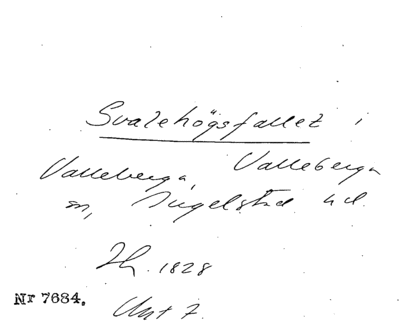 Svalehögsfallet i
Valleberga, Valleberga
sn, Ingelstad hd.
Jh. 1828
Nr 7684.